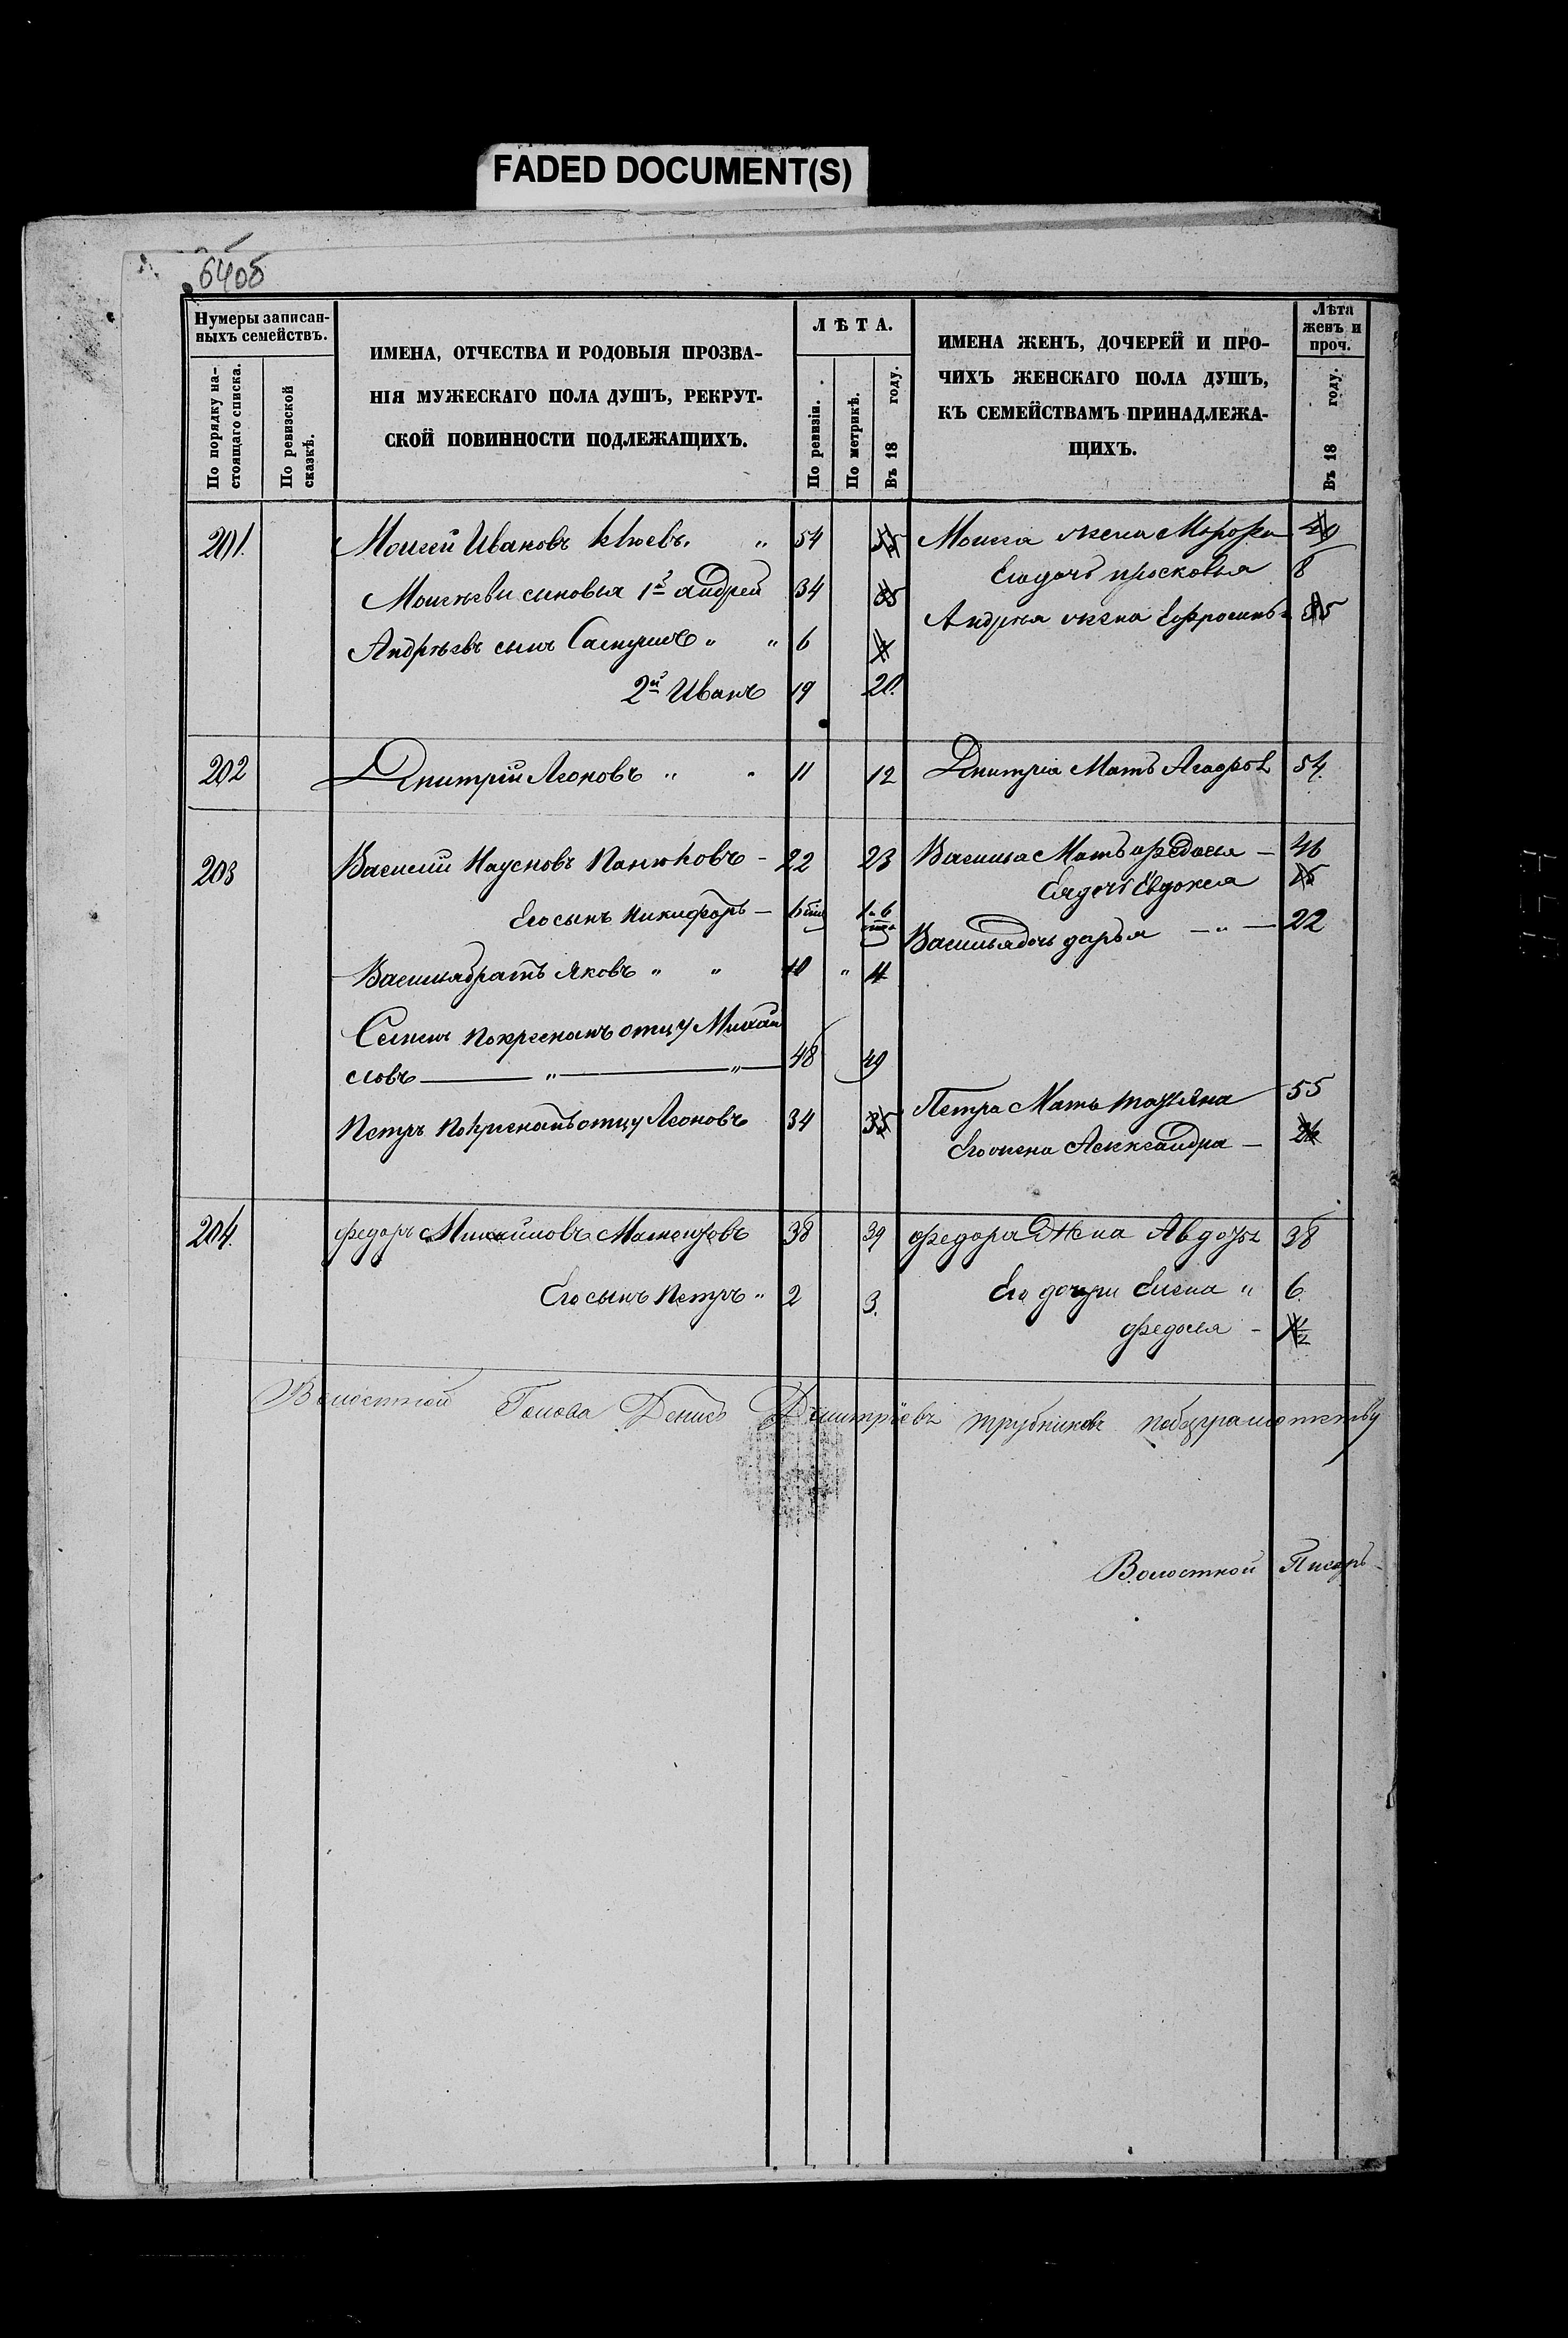 FADED DOCUMENT(S)
6405
Нумеры записан-
ныхъ семействъ.
По порядку на-
стоящаго списка.
По ревизской
сказкѣ.
ИМЕНА, ОТЧЕСТВА И РОДОВЫЯ ПРОЗВА-
НІЯ МУЖЕСКАГО ПОЛА ДУШЪ, РЕКРУТ-
СКОЙ ПОВИННОСТИ ПОДЛЕЖАЩИХЪ.
ЛѢТА.
По ревизіи.
По метрикѣ.
Въ 18 году.
ИМЕНА ЖЕНЪ, ДОЧЕРЕЙ И ПРО-
ЧИХЪ ЖЕНСКАГО ПОЛА ДУШЪ,
КЪ СЕМЕЙСТВАМЪ ПРИНАДЛЕЖА-
ЩИХЪ.
Лѣта
женъ и
проч.
Въ 18 году.
201. Моисей Ивановъ " 54 55 Моисея жена 49
Моисеевы сыновья 1й андрей 34 35 Его дочь просковья 8
Андрѣевъ сынъ " " 6 Андрея жена Ефросинья 35
2й Иванъ 19 20.
202 Дмитрій Леоновъ " " 11 12 Дмитрія Мать Агафья 54.
203 Василій Наумовъ Панюковъ - 22 23 Василья Мать федосья — 46
Его сынъ Никифоръ — 6 1-6 Ея дочь Евдокея 15
Васильядочь дарья — " — 22
Васильябратъ Яковъ " " 10 " 11
Семенъ покресномъ отцу Михаи
ловъ — " — " — 48 49
Петръ покресномъ отцу Леоновъ 34 35 Петра Мать татьяна 55
Его жена Александра — 26
204. федоръ Михайловъ 38 39 федора Жена Авдотья 38
Его сынъ Петръ " 2 3. Его дочери Елена " 6.
федосья -
Волостной Голова Денисъ Дмитріевъ трубниковъ
Волостной Писарь